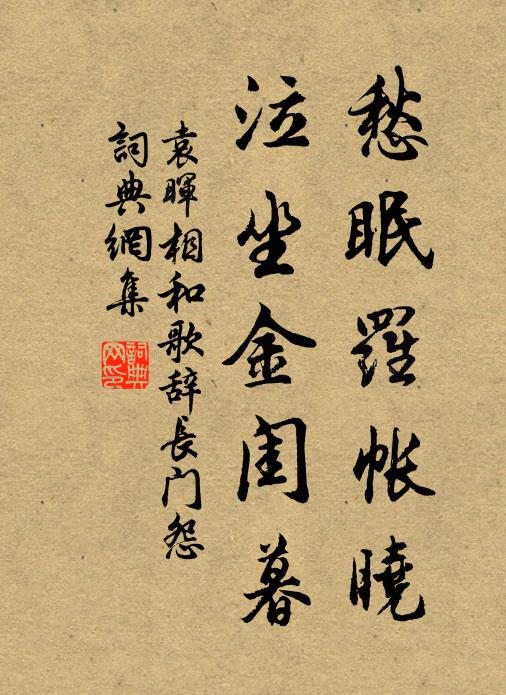 愁眠羅帳曉
泣坐金闺暮
袁暉相和歌辞長门怨
詞典網集
詞典网印